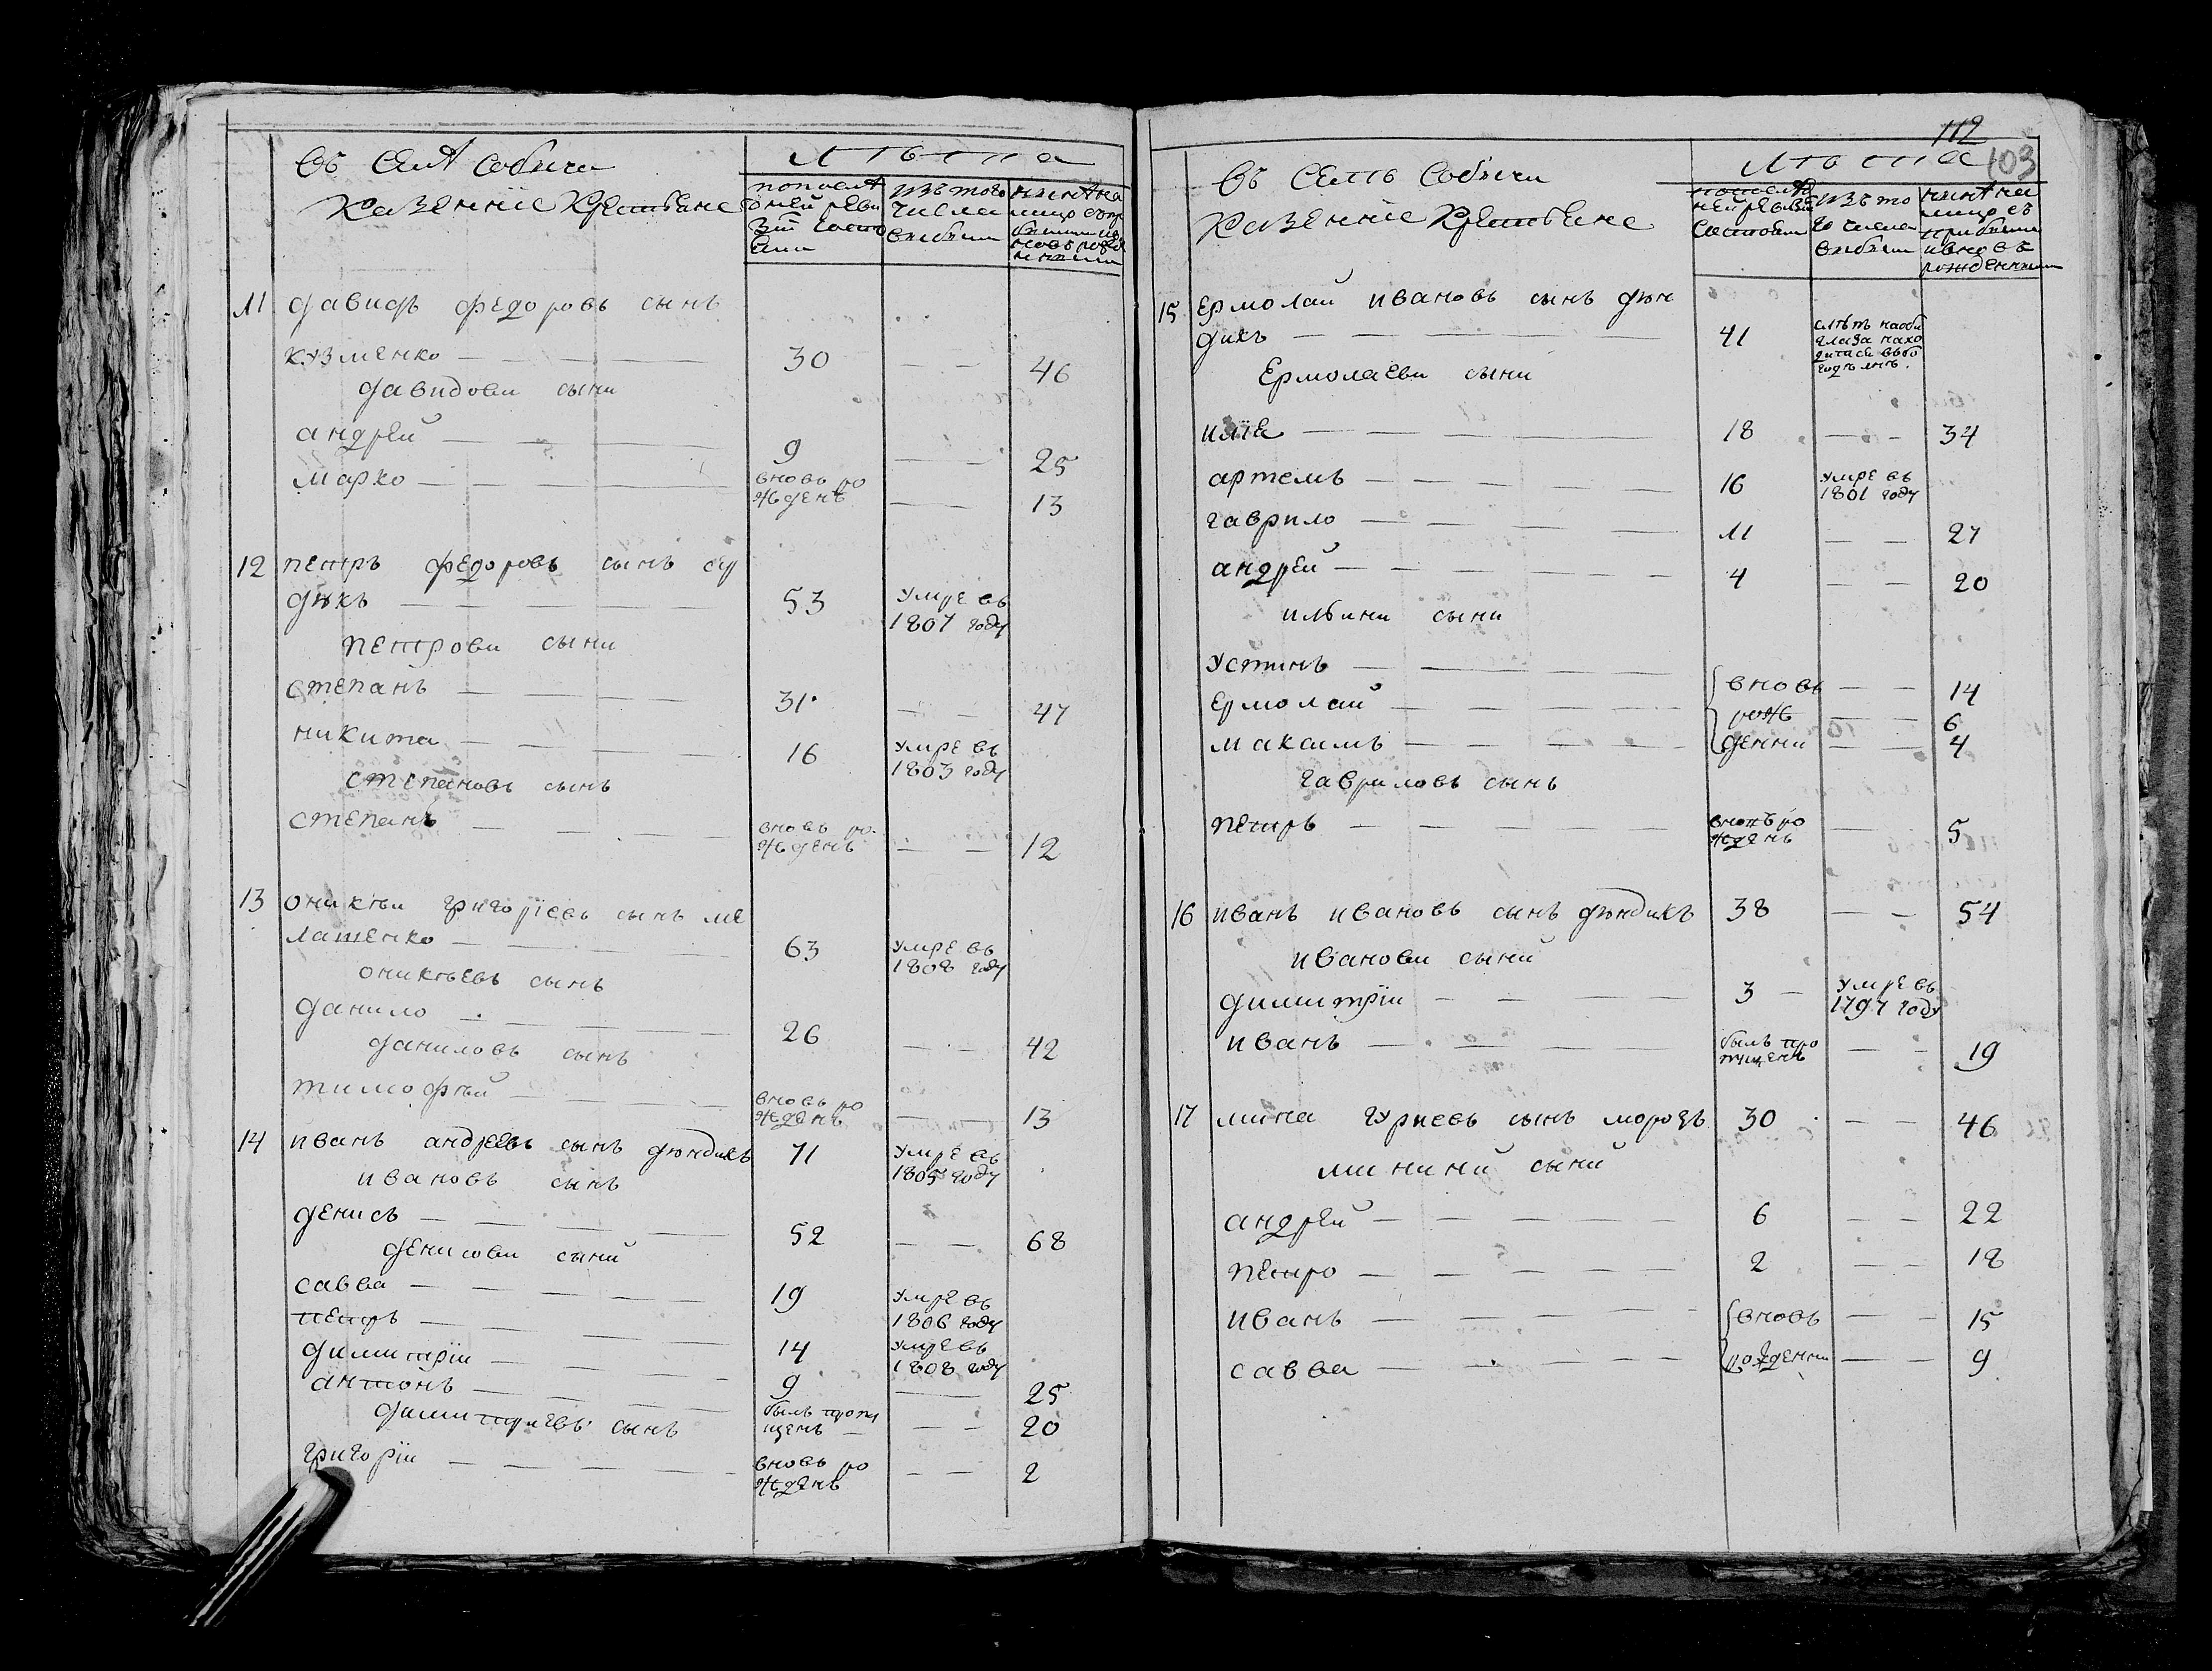 Въ Селѣ Собычи
Казенніе Крестьяне
Лѣта
попослѣ
дней реви
зіи состо
яли
изъ того
числа
выбыли
нынѣ на
лицо
11 давидъ федоровъ сынъ
кузменко — — — — 30 — — 46
давидови сыни
андрей — — — 9 — — 25
марко — — — — вновь ро
жденъ — — 13
12 петръ федоровъ сынъ сер
дюкъ — — — — 53 умре въ
1807 году
петрови сыни
степанъ — — — — 31 — — 47
никита — — — — 16 умре въ
1803 году
степановъ сынъ
степанъ — — — — вновь ро
жденъ — — 12
13 оникѣи григоріевъ сынъ ме
лашенко — — — — 63 умре въ
1808 году
оникѣевъ сынъ
данило — — — — 26 — — 42
даниловъ сынъ
тимофѣй — — — — вновь ро
жденъ — — 13
14 иванъ андреевъ сынъ дюндикъ 71 умре въ
1805 году
ивановъ сынъ
денисъ — — — — 52 — — 68
денисови сыни
савва — — — — 19 умре въ
1806 году
петръ — — — — 14 умре въ
1808 году
димитріи — — — 9 — 25
антонъ — — — — былъ пропу
щенъ — — — 20
димитріевъ сынъ
григоріи — — — — вновь ро
жденъ — — 2
112
103
Въ Селѣ Собычи
Казенніе Крестьяне
Лѣта
попослѣд
ней ревизіи
состояли
изъ то
го числа
выбыли
нынѣ на
лицо съ
прибыли
и вновь
рожденными
15 Ермолаи ивановъ сынъ дюн
дикъ — — — — 41
годъ
Ермолаеви сыни
илїя — — — — 18 — — 34
артемъ — — — — 16 умре въ
1801 году
гаврило — — — — 11 — — 27
андрей — — — — 4 — — 20
ильини сыни
устинъ — — — — вновь — — 14
Ермолай — — — — рож — — 6
максимъ — — — — денни — — 4
гавриловъ сынъ
петръ — — — — вновь ро
жденъ — — 5
16 иванъ ивановъ сынъ дюндикъ 38 — — 54
иванови сыни
димитріи — — — — 3 — умре въ
1797 году
иванъ — — — — былъ про
пущенъ — — 19
17 мина гуриевъ сынъ морозъ 30 — — 46
минини сыни
андрей — — — — 6 — — 22
петро — — — — 2 — — 18
иванъ — — — — вновь — — 15
савва — — — — рожденни — — 9